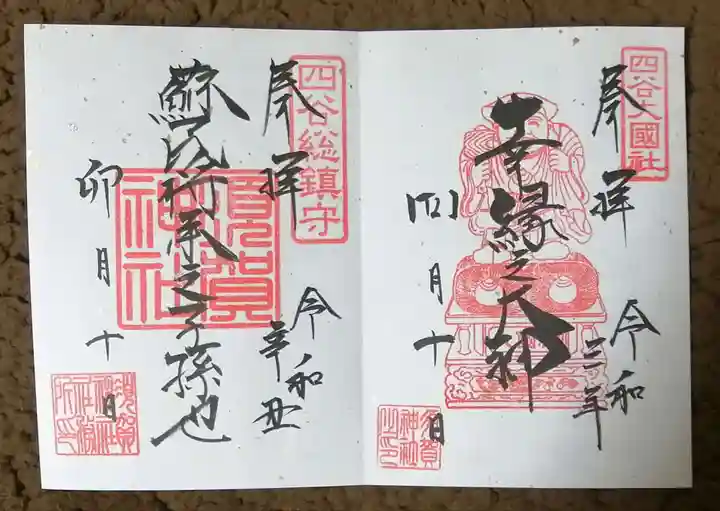 四谷大國社
奉拝
幸縁之大神
令和三年
四月十日
須賀神社之印
四谷総鎮守
奉拝
須賀神社
蘇民将来之子孫也
令和辛丑
卯月十日
須賀神社